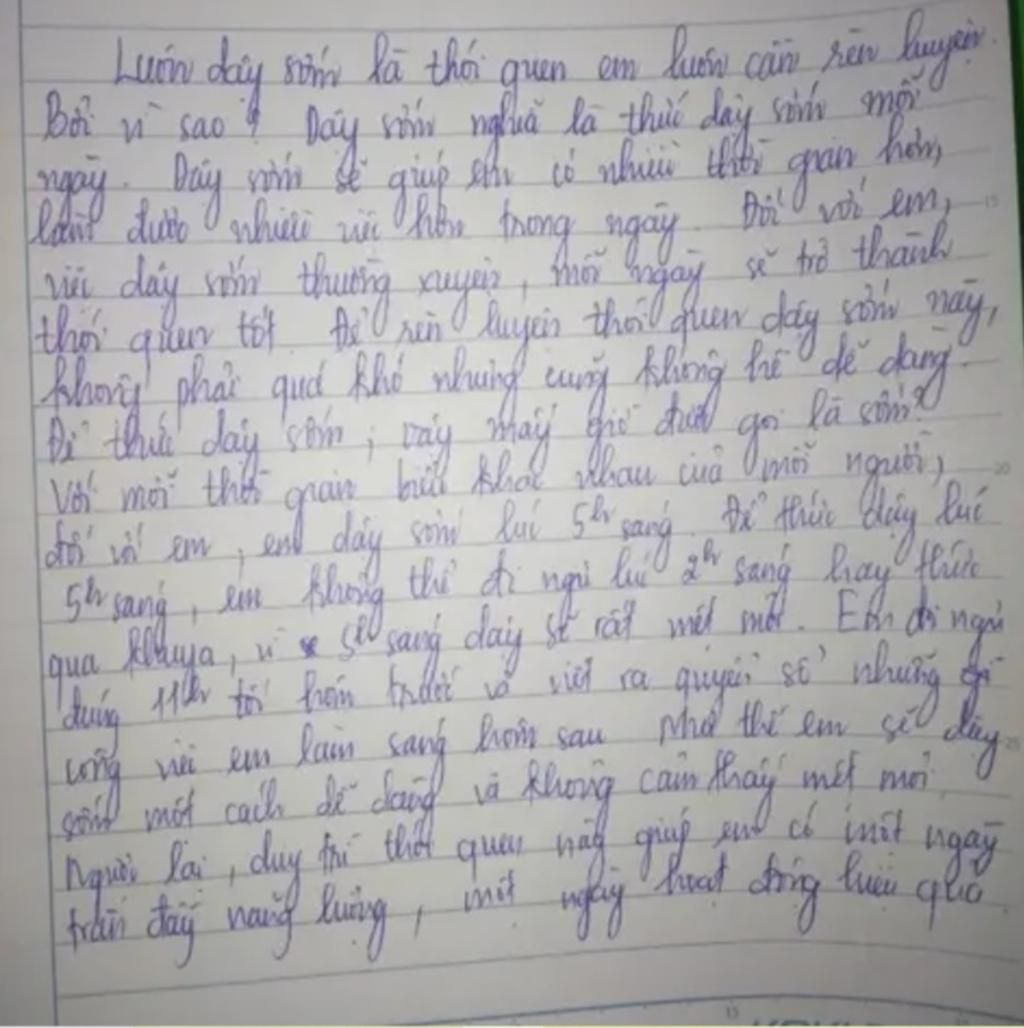 Luôn dậy sớm là thói quen em luôn cần rèn luyện.
Bởi vì sao? Dậy sớm nghĩa là thức dậy sớm mỗi
ngày. Dậy sớm sẽ giúp em có nhiều thời gian hơn,
làm được nhiều việc hơn trong ngày. Đối với em,
việc dậy sớm thường xuyên, mỗi ngày sẽ trở thành
thói quen tốt. Để rèn luyện thói quen dậy sớm này,
không phải quá khó nhưng cũng không hề dễ dàng.
Để thức dậy sớm, vậy mấy giờ được gọi là sớm?
Với mỗi thời gian biểu khác nhau của mỗi người,
đối với em, em dậy sớm lúc 5h sáng. Để thức dậy lúc
5h sáng, em không thể đi ngủ lúc 2h sáng hay thức
quá khuya, vì 5h sáng dậy sẽ rất mệt mỏi. Em đi ngủ
đúng 11h tối hôm trước và viết ra quyển sổ những gì
công việc em làm sáng hôm sau. Nhờ thế em sẽ dậy
sớm một cách dễ dàng và không cảm thấy mệt mỏi.
Ngược lại, duy trì thói quen này giúp em có một ngày
tràn đầy năng lượng, một ngày hoạt động hiệu quả.